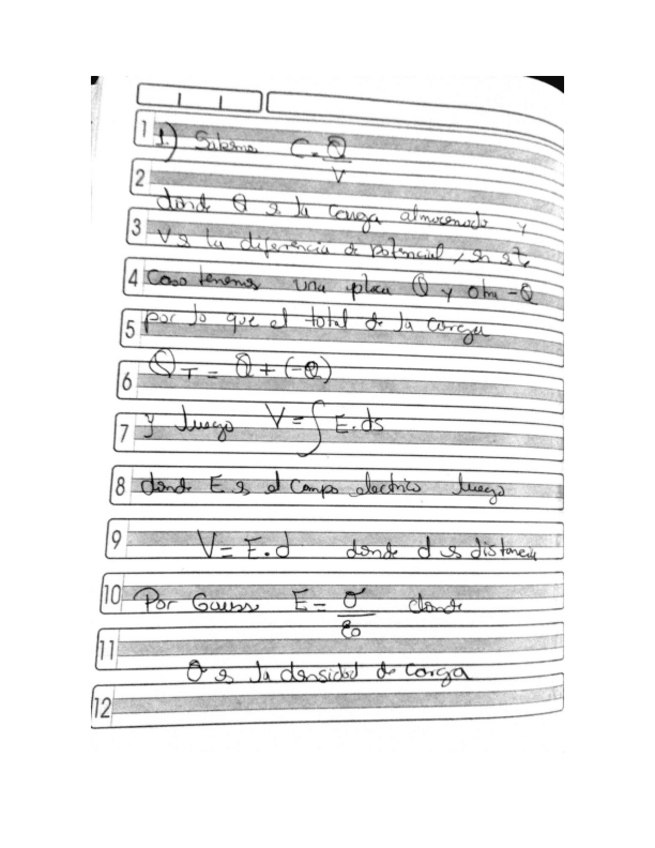 1 1.) Sabemos C = Q/V
2
donde Q es la carga almacenada y
3 V es la diferencia de potencial, en este
4 Caso tenemos una placa Q y otra -Q
5 por lo que el total de la carga
6 Q_T = Q + (-Q)
7 y luego V = ∫ E . ds
8 donde E es el campo electrico luego
9 V = E . d donde d es distancia
10 Por Gauss E = σ/ε0 donde
11
σ es la densidad de carga
12